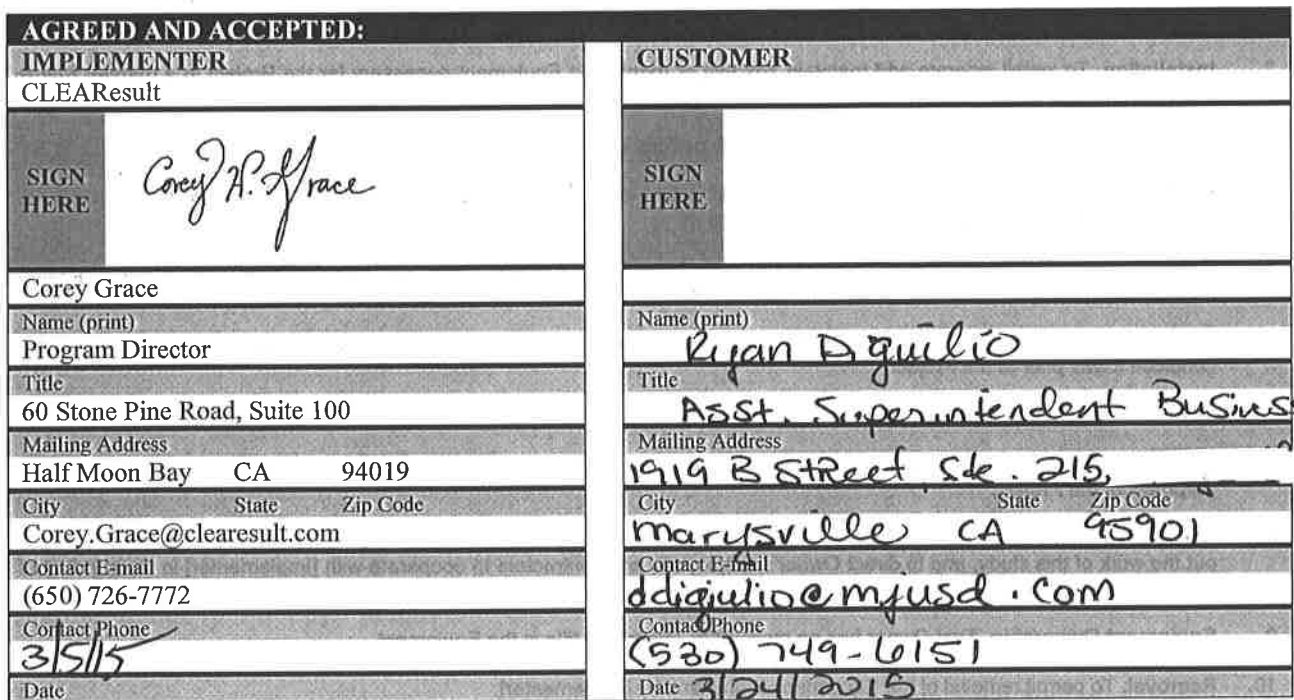 AGREED AND ACCEPTED:
IMPLEMENTER
CLEAResult
SIGN
HERE
Corey W. Grace
Corey Grace
Name (print)
Program Director
Title
60 Stone Pine Road, Suite 100
Mailing Address
Half Moon Bay CA 94019
City State Zip Code
Corey.Grace@clearesult.com
Contact E-mail
(650) 726-7772
Contact Phone
3/5/15
Date
CUSTOMER
SIGN
HERE
Name (print)
Ryan Diguilio
Title
Asst. Superintendent Busines
Mailing Address
1919 B Street Ste. 215,
City State Zip Code
Marysville CA 95901
Contact E-mail
ddigiulio@mjusd.com
Contact Phone
(530) 749-6151
Date 3/24/2015